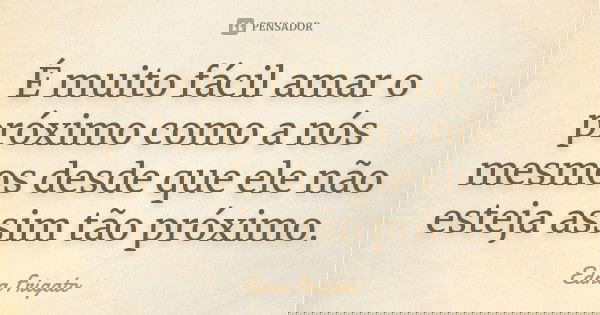 PENSADOR
É muito fácil amar o
próximo como a nós
mesmos desde que ele não
esteja assim tão próximo.
Edna Frigato